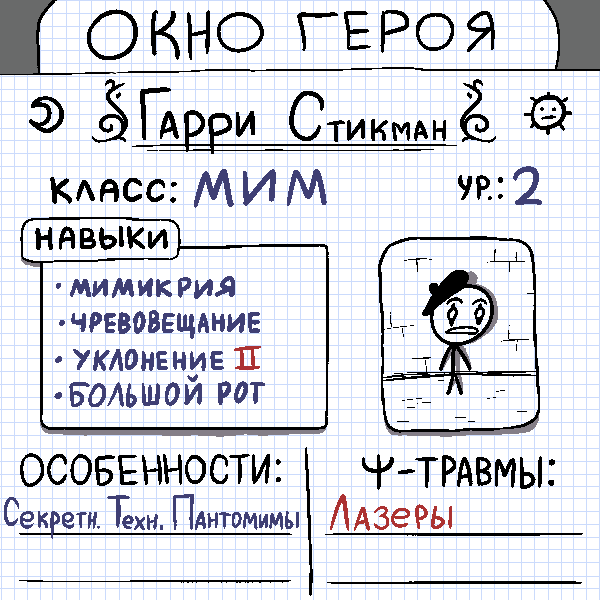 ОКНО ГЕРОЯ
Гарри Стикман
КЛАСС: МИМ
УР.: 2
НАВЫКИ
• МИМИКРИЯ
• ЧРЕВОВЕЩАНИЕ
• УКЛОНЕНИЕ II
• БОЛЬШОЙ РОТ
ОСОБЕННОСТИ:
Секретн. Техн. Пантомимы
Ψ-ТРАВМЫ:
Лазеры